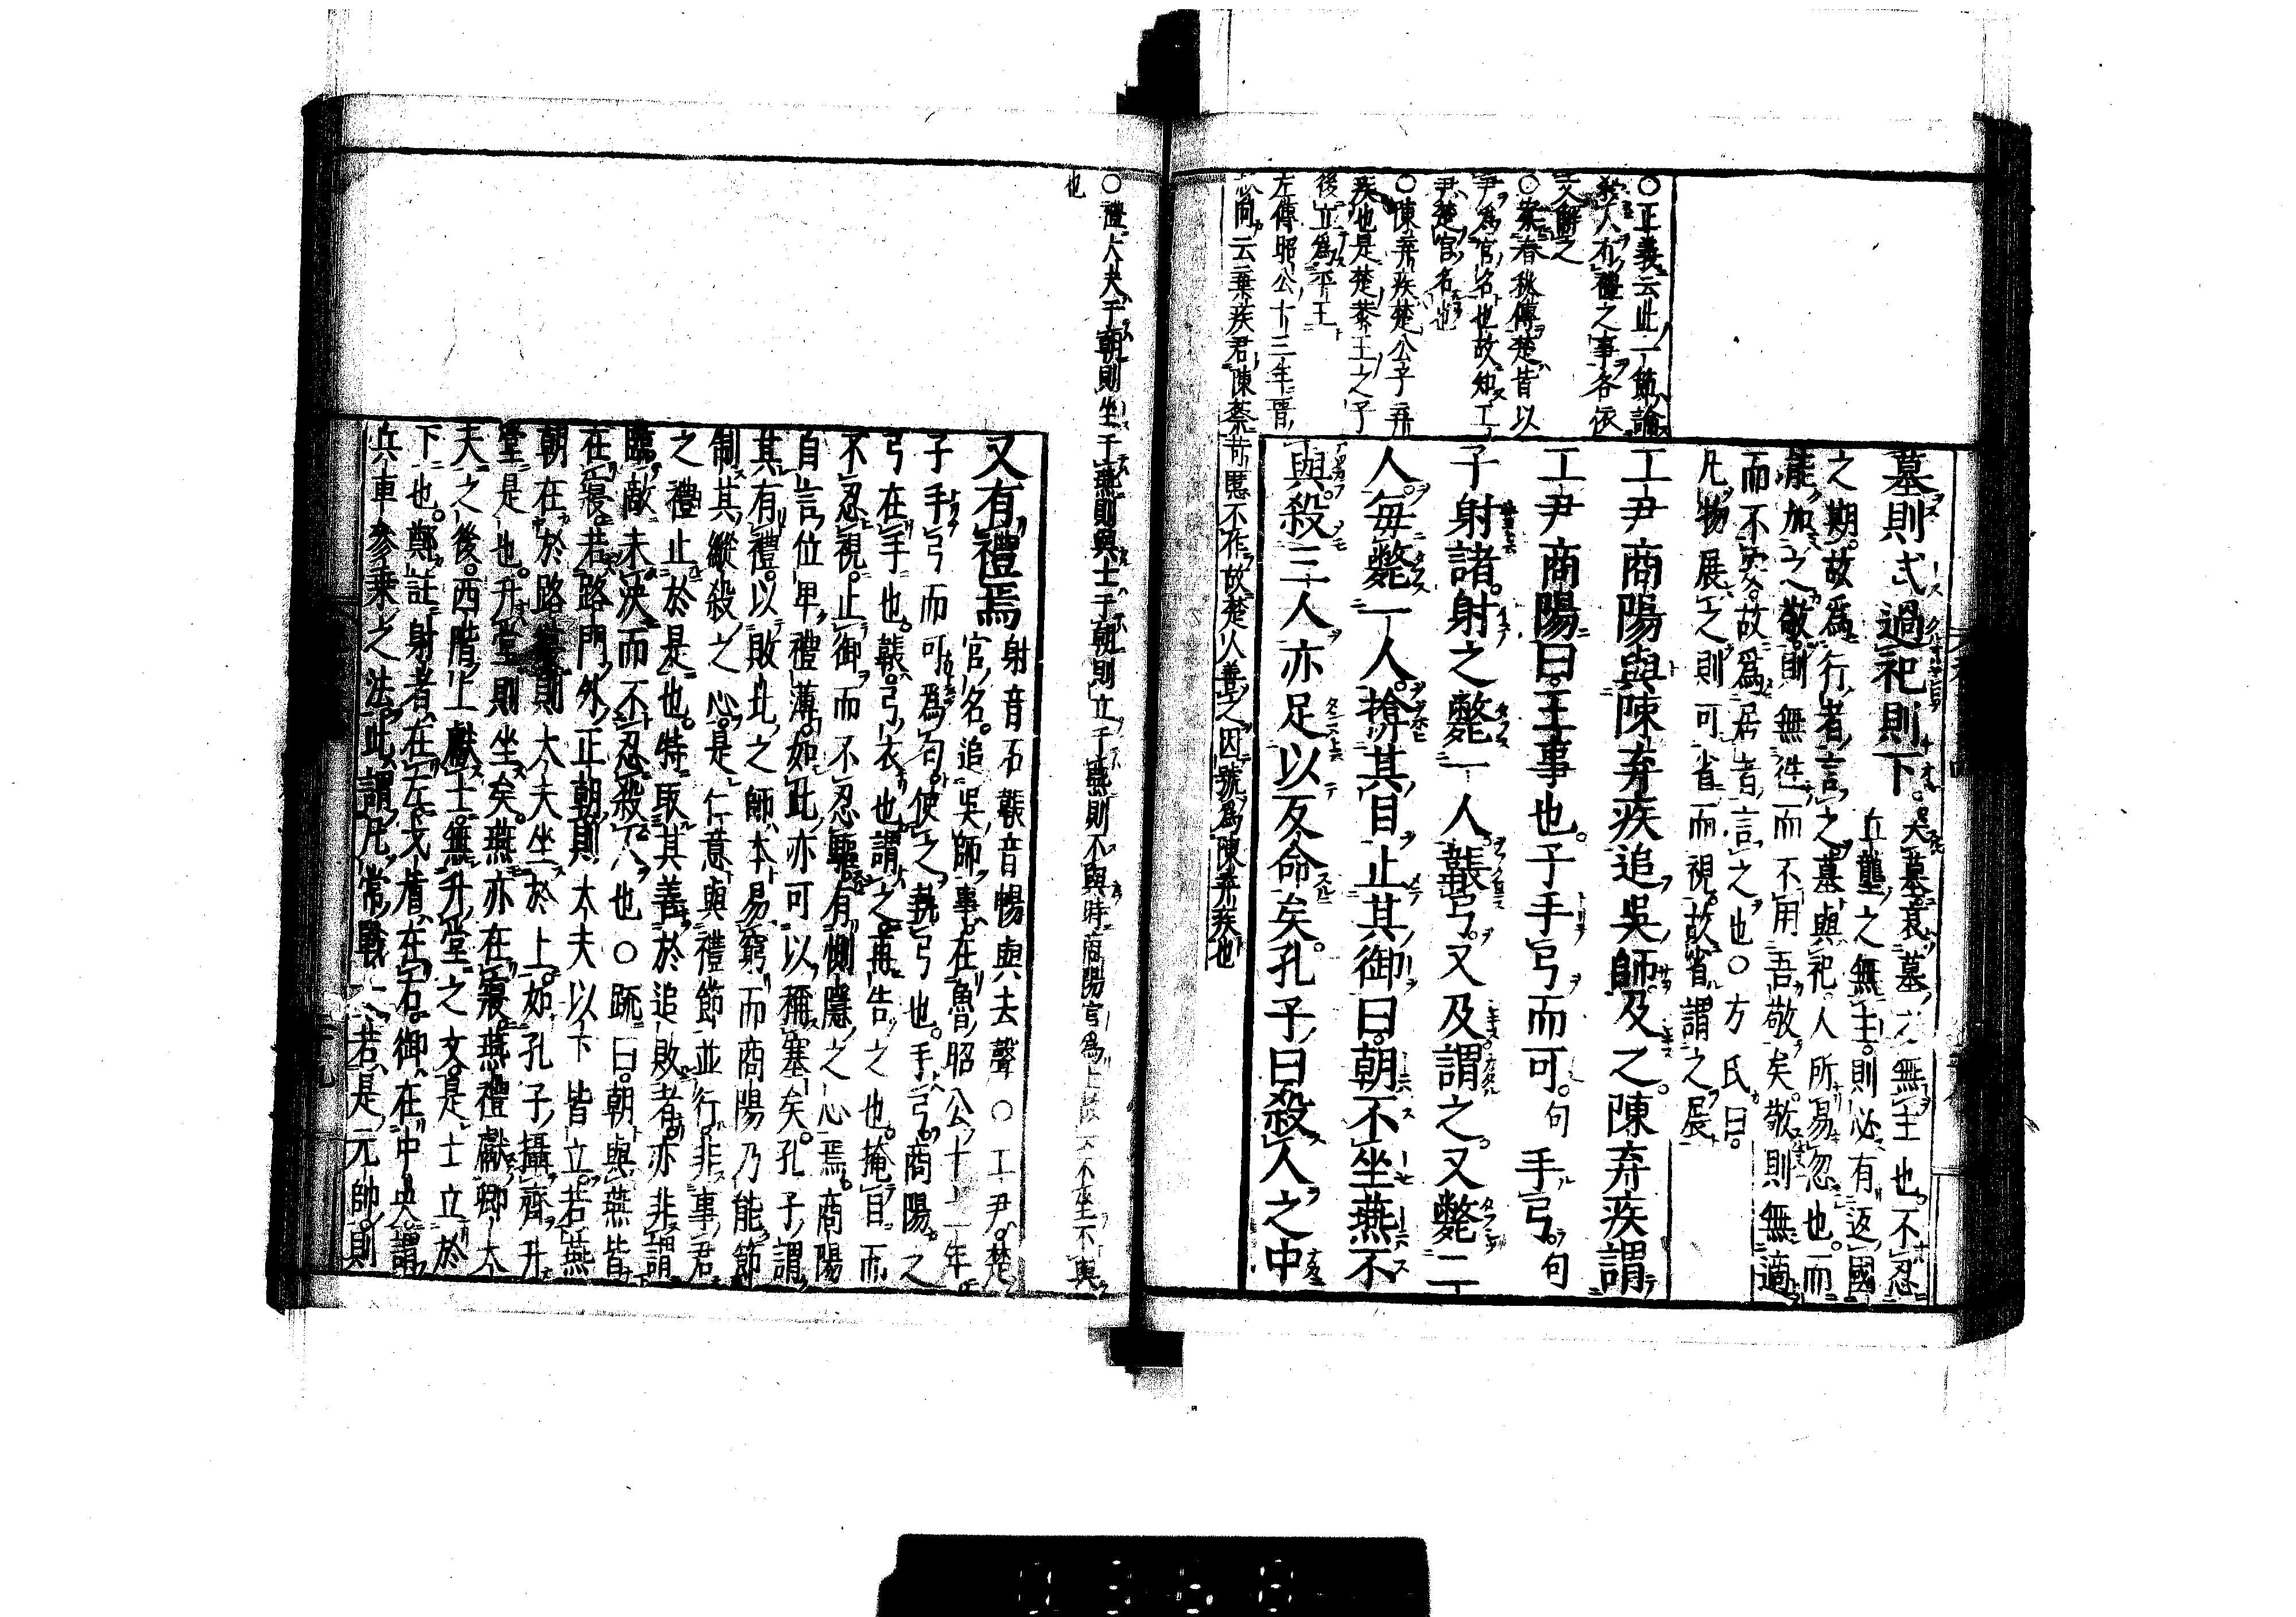 墓則式過祀則下。夫墓哀墓之無主也。不忍
丘壟之無主。則必有返國
之期。故為行者言之。墓與祀人所易忽也。而
能加之敬。則無往而不用吾敬矣。敬則無適
而不安。故為居者言之也○方氏曰。
凡物展之則可省而視。故省謂之展
工尹商陽與陳弃疾追吳師及之。陳弃疾謂
工尹商陽曰。王事也。子手弓而可。句手弓。句
子射諸。射之斃一人韔弓。又及謂之。又斃二
人。每斃一人。揜其目止其御曰。朝不坐燕不
與。殺三人亦足以反命矣。孔子曰殺人之中
○正義云此一節論
殺人有禮之事各依
文解之
○案春秋傳楚皆以
尹為官名也故知工
尹楚官名也
○陳弃疾楚公子弃
疾也是楚恭王之子
後立為平王
左傳昭公十三年晋
叔向云棄疾君陳蔡苛慝不作故楚人善之因號為陳弃疾也
○禮大夫于朝則坐于燕則與士于朝則立于燕則不與時商陽官為士故云不坐不與
也
又有禮焉射音石韔音暢與去聲○工尹。楚
官名。追吳師事。在魯昭公十二年。
子手弓而可為句。使之執弓也。手弓。商陽之
弓在手也。韔弓衣也。謂之。再告之也。掩目而
不忍視。止御而不忍驅。有惻隱之心焉。商陽
自言位卑禮薄。如此亦可以稱塞矣。孔子謂
其有禮。以敗北之師本易窮。而商陽乃能節
制其縱殺之心。是仁意與禮節並行。非事君
之禮止於是也。特取其善於追敗者。亦非謂
臨敵未決而不忍殺人也○疏曰。朝與燕皆
在寢。若路門外正朝。則大夫以下皆立。若燕
朝在於路寢。則大夫坐於上。如孔子攝齊升
堂是也。升堂則坐矣。燕亦在寢。燕禮獻卿大
夫之後。西階上獻士。無升堂之文。是士立於
下也。鄭註射者在左。戈盾在右。御在中央。謂
兵車參乘之法。此謂凡常戰士。若是元帥。則